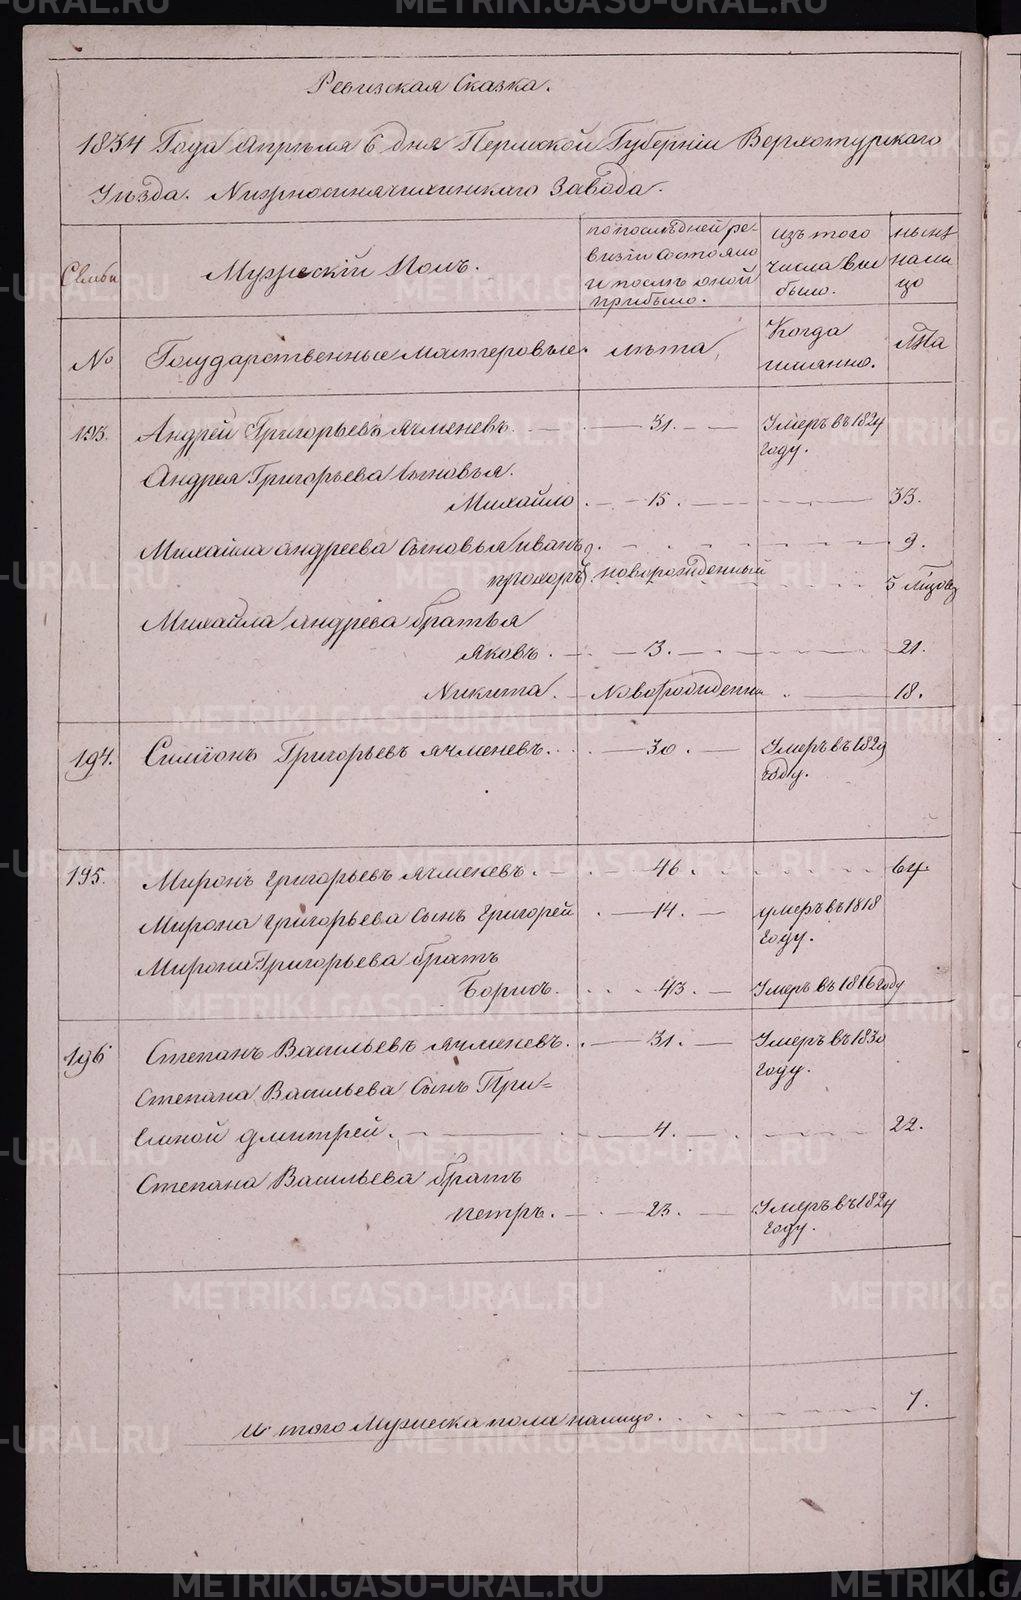 Ревизская Сказка.
1834 Года Апреля 6 дня Пермской Губерніи Верхотурскаго
Уезда. Нижнесинячихинскаго Завода.
Семьи
Мужескій Полъ.
по последней ре-
визіи состояло
и после оной
прибыло.
изъ того
числа вы
было.
ныне
нали
цо
№
Государственные Мастеровые.
лета
Когда
именно.
Лета
193.
Андрей Григорьевъ Ячменевъ.
31.
Умеръ въ 1824
году.
Андрея Григорьева Сыновья.
Михайло
15.
33.
Михаила Андреева Сыновья Иванъ
9.
Прохоръ
новорожденный
5 месяцовъ
Михайла Андреева братья
Яковъ.
3.
21.
Никита.
Новорожденны
18.
194.
Симіонъ Григорьевъ Ячменевъ.
30.
Умеръ въ 1829
году.
195.
Миронъ Григорьевъ Ячменевъ.
46.
64.
Мирона Григорьева Сынъ Григорей
14.
умеръ въ 1818
году.
Мирона Григорьева братъ
Борисъ.
43.
Умеръ въ 1816 году
196
Степанъ Васильевъ Ячменевъ.
31.
Умеръ въ 1830
году.
Степана Васильева Сынъ При=
Емной Дмитрей.
4.
22.
Степана Васильева братъ
Петръ.
23.
Умеръ въ 1824
году.
И того Мужеска пола налицо.
7.
METRIKI.GASO-URAL.RU